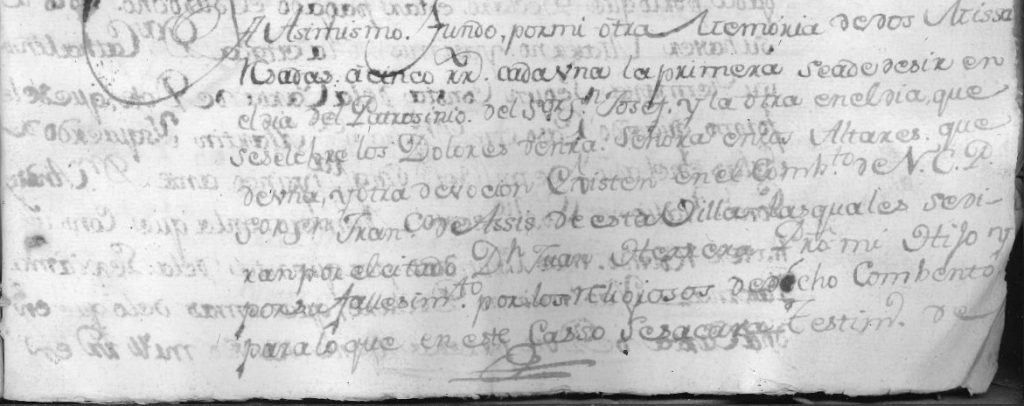 Asimismo. fundo, por mi otra Memoria de dos Missa
Resadas. â cinco rr.ˢ cada vna la primera sea de desir en
el dia del Patrosinio. del S.ʳ S.ⁿ Josef. y la otra en el dia, que
se selebre los Dolores de nra. Señora en los Altares. que
de vna, y otra devocion Existen en el Comb.ᵗᵒ de N. S. P.
S.ⁿ Fran.ᶜᵒ de Assis. de esta Villa, las quales se di-
ran por el citado, D.ⁿ Juan Herrera Pro mi Hijo y
por su fallesim.ᵗᵒ por los Religiosos de dicho Combento,
para lo que en este Casso se sacara Testim.º de